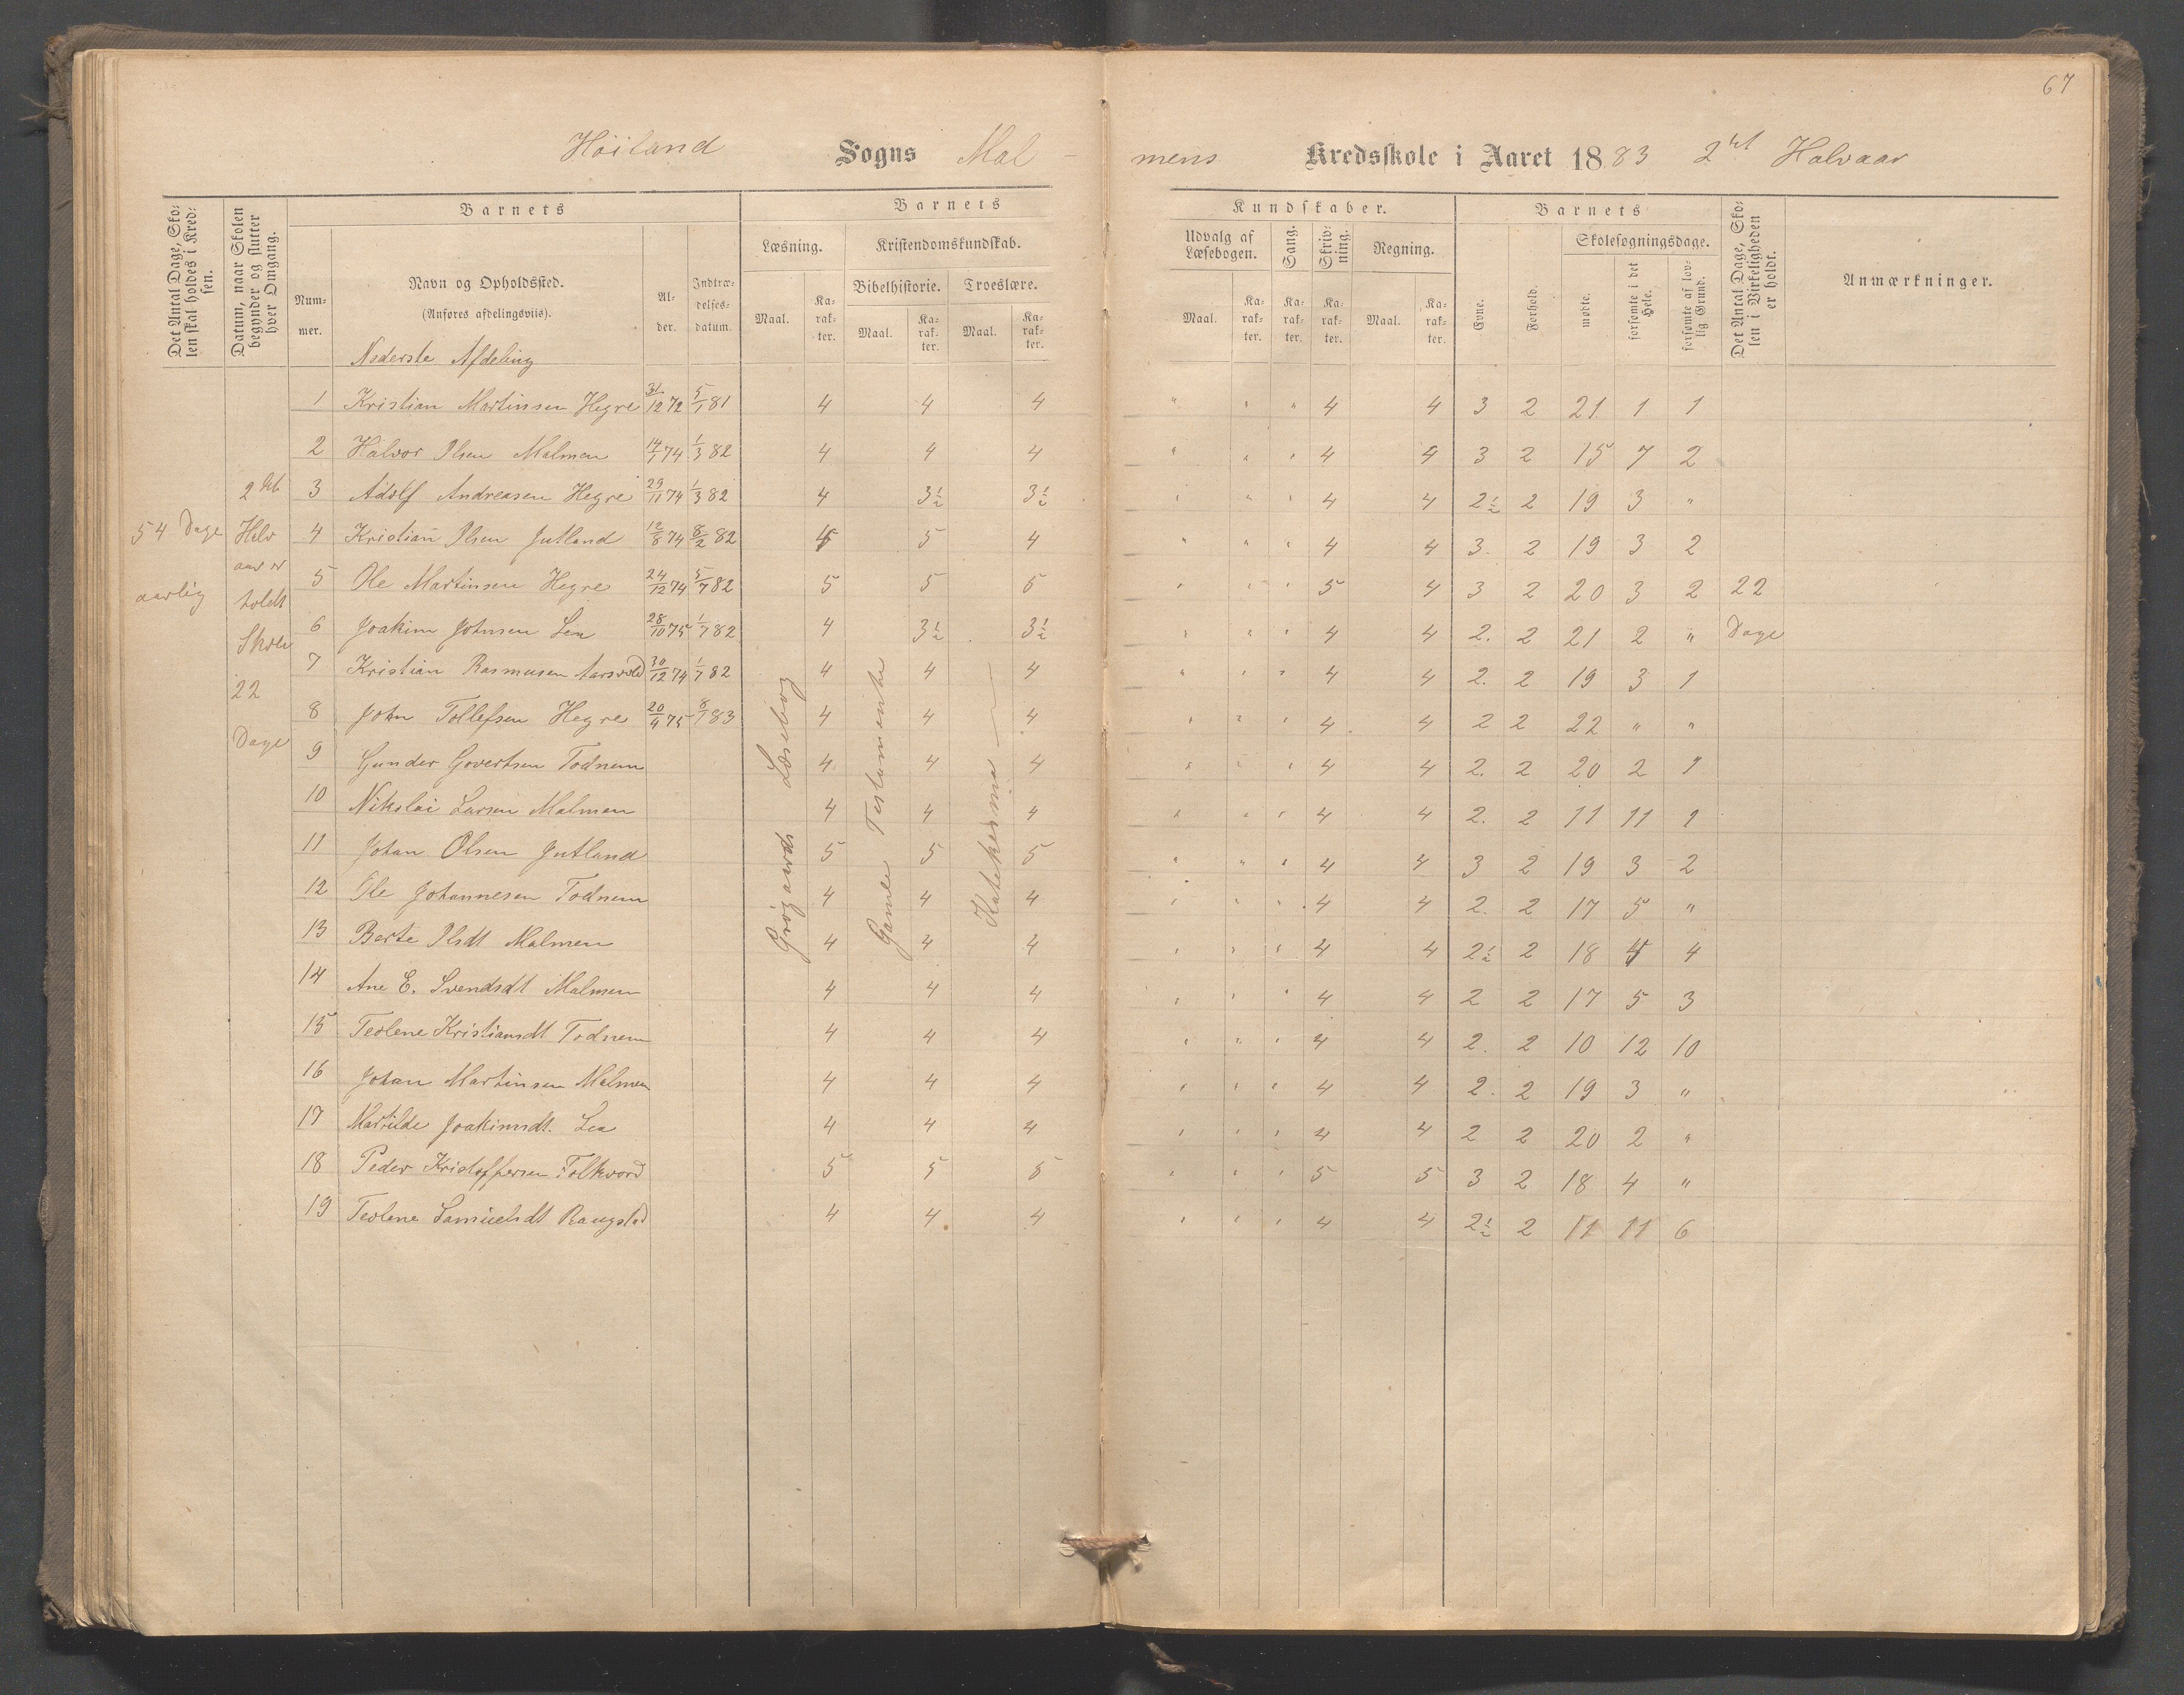 67
Höiland Sogns Mal- mens Kredsskole i Aaret 1883 2det Halvaar
Det Antal Dage, Sko-
len skal holdes i Kred-
sen.
Datum, naar Skolen
begynder og slutter
hver Omgang.
Barnets
Num-
mer.
Navn og Opholdssted.
(Anføres afdelingsviis).
Al-
der.
Indtræ-
delses-
datum.
Barnets
Læsning.
Maal.
Ka-
rak-
ter.
Kristendomskundskab.
Bibelhistorie.
Maal.
Ka-
rak-
ter.
Troeslære.
Maal.
Ka-
rak-
ter.
Kundskaber.
Udvalg af
Læsebogen.
Maal.
Ka-
rak-
ter.
Sang.
Ka-
rak-
ter.
Skriv-
ning.
Ka-
rak-
ter.
Regning.
Maal.
Ka-
rak-
ter.
Barnets
Evne.
Forhold.
Skolesøgningsdage.
mødte.
forsømte i det
Hele.
forsømte af lov-
lig Grund.
Det Antal Dage, Sko-
len i Virkeligheden
er holdt.
Anmærkninger.
Nederste Afdeling
54 Dage
aarlig
2det
Halv
aar er
holdt
Skole
22
Dage
Grøgaards Læsebog
Gamle Testamente
Katekesmia
1 Kristian Martinsen Hegre 31/12 72 5/1 81 4 4 4 " " " 4 4 3 2 21 1 1
2 Halvor Olsen Malmen 14/1 74 1/3 82 4 4 4 " " " 4 4 3 2 15 7 2
3 Adolf Andreasen Hegre 29/11 74 1/3 82 4 3½ 3½ " " " 4 4 2½ 2 19 3 "
4 Kristian Olsen Jutland 12/8 74 8/2 82 5 5 4 " " " 4 4 3. 2 19 3 2
5 Ole Martinsen Hegre 24/12 74 5/7 82 5 5 5 " " " 5 4 3 2 20 3 2 22
6 Joakim Johnsen Lea 28/10 75 1/7 82 4 3½ 3½ " " " 4 4 2. 2 21 2 " Dage
7 Kristian Rasmusen Aarsvold 30/12 74 1/7 82 4 4 4 " " " 4 4 2. 2 19 3 1
8 John Tollefsen Hegre 20/4 75 8/1 83 4 4 4 " " " 4 4 2 2 22 " "
9 Gunder Govertsen Todnem 4 4 4 " " " 4 4 2. 2 20 2 1
10 Nikolai Larsen Malmen 4 4 4 " " " 4 4 2. 2 11 11 1
11 Johan Olsen Jutland 5 5 5 " " " 4 4 3 2 19 3 2
12 Ole Johannesen Todnem 4 4 4 " " " 4 4 2. 2 17 5 "
13 Berte Olsdt Malmen 4 4 4 " " " 4 4 2½ 2 18 4 4
14 Ane E. Svendsdt Malmen 4 4 4 " " " 4 4 2 2 17 5 3
15 Teolene Kristiansdt Todnem 4 4 4 " " " 4 4 2. 2 10 12 10
16 Johan Martinsen Malmen 4 4 4 " " " 4 4 2. 2 19 3 "
17 Matilde Joakimsdt. Lea 4 4 4 " " " 4 4 2 2 20 2 "
18 Peder Kristoffersen Folkvord 5 5 5 " " " 5 5 3 2 18 4 "
19 Teolene Samuelsdt Raugstad 4 4 4 " " " 4 4 2½ 2 11 11 6